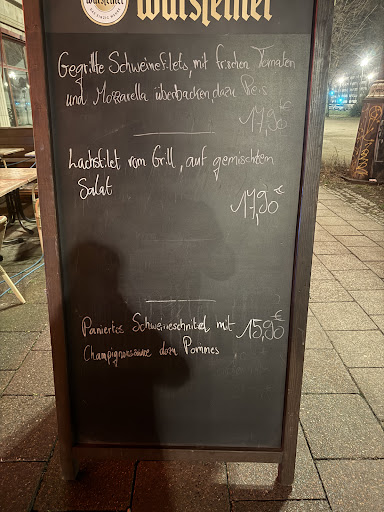 Warsteiner
Gegrillte Schweinefilets, mit frischen Tomaten
und Mozzarella überbacken, dazu Reis
17,90€
Lachsfilet vom Grill, auf gemischtem
Salat
17,90€
Paniertes Schweineschnitzel mit 15,90€
Champignonsauce dazu Pommes